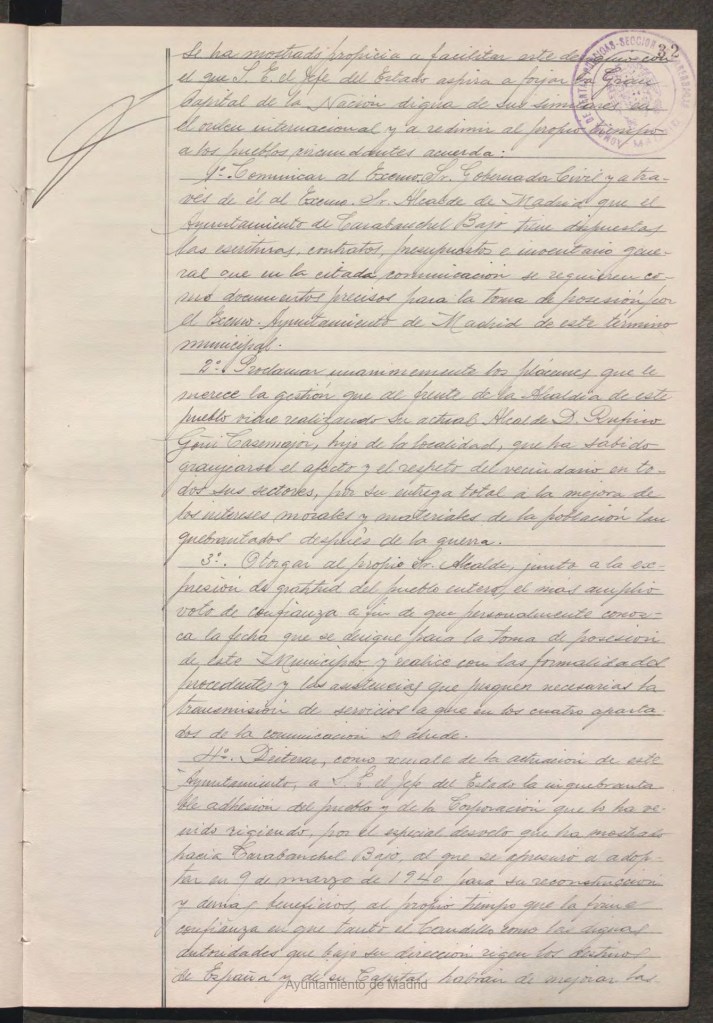 32
se ha mostrado propicia a facilitar este
el que S. E. el Jefe del Estado aspira a forjar la Gran
Capital de la Nación digna de sus similares en
el orden internacional y a redimir al propio tiempo
a los pueblos circundantes acuerda:
1º. Comunicar al Excmo. Sr. Gobernador Civil y a tra-
vés de él al Excmo. Sr. Alcalde de Madrid que el
Ayuntamiento de Carabanchel Bajo tiene dispuestas
las escrituras, contratos, presupuestos e inventario gene-
ral que en la citada comunicación se requieren co-
mo documentos precisos para la toma de posesión por
el Excmo. Ayuntamiento de Madrid de este término
municipal.
2º. Proclamar unanimemente los plácemes que le
merece la gestión que al frente de la Alcaldía de este
pueblo viene realizando su actual Alcalde D. Rufino
Goñi Casemajor, hijo de la localidad, que ha sabido
granjearse el afecto y el respeto del vecindario en to-
dos sus sectores, por su entrega total a la mejora de
los intereses morales y materiales de la población tan
quebrantados después de la guerra.
3º. Otorgar al propio Sr. Alcalde, junto a la ex-
presión de gratitud del pueblo entero, el más amplio
voto de confianza a fin de que personalmente conoz-
ca la fecha que se designe para la toma de posesión
de este Municipio y realice con las formalidades
procedentes y las asistencias que juzguen necesarias la
transmisión de servicios a que en los cuatro aparta-
dos de la comunicación se alude.
4º. Reiterar, como remate de la actuación de este
Ayuntamiento, a S. E el Jefe del Estado la inquebranta
ble adhesión del pueblo y de la Corporación que lo ha ve-
nido rigiendo, por el especial desvelo que ha mostrado
hacia Carabanchel Bajo, al que se apresuró a adop-
tar en 9 de marzo de 1940 para su reconstrucción
y demás beneficios, al propio tiempo que la firme
confianza en que tanto el Caudillo como las dignas
autoridades que bajo su dirección rigen los destinos
de España y de su Capital, habrán de mejorar las
Ayuntamiento de Madrid